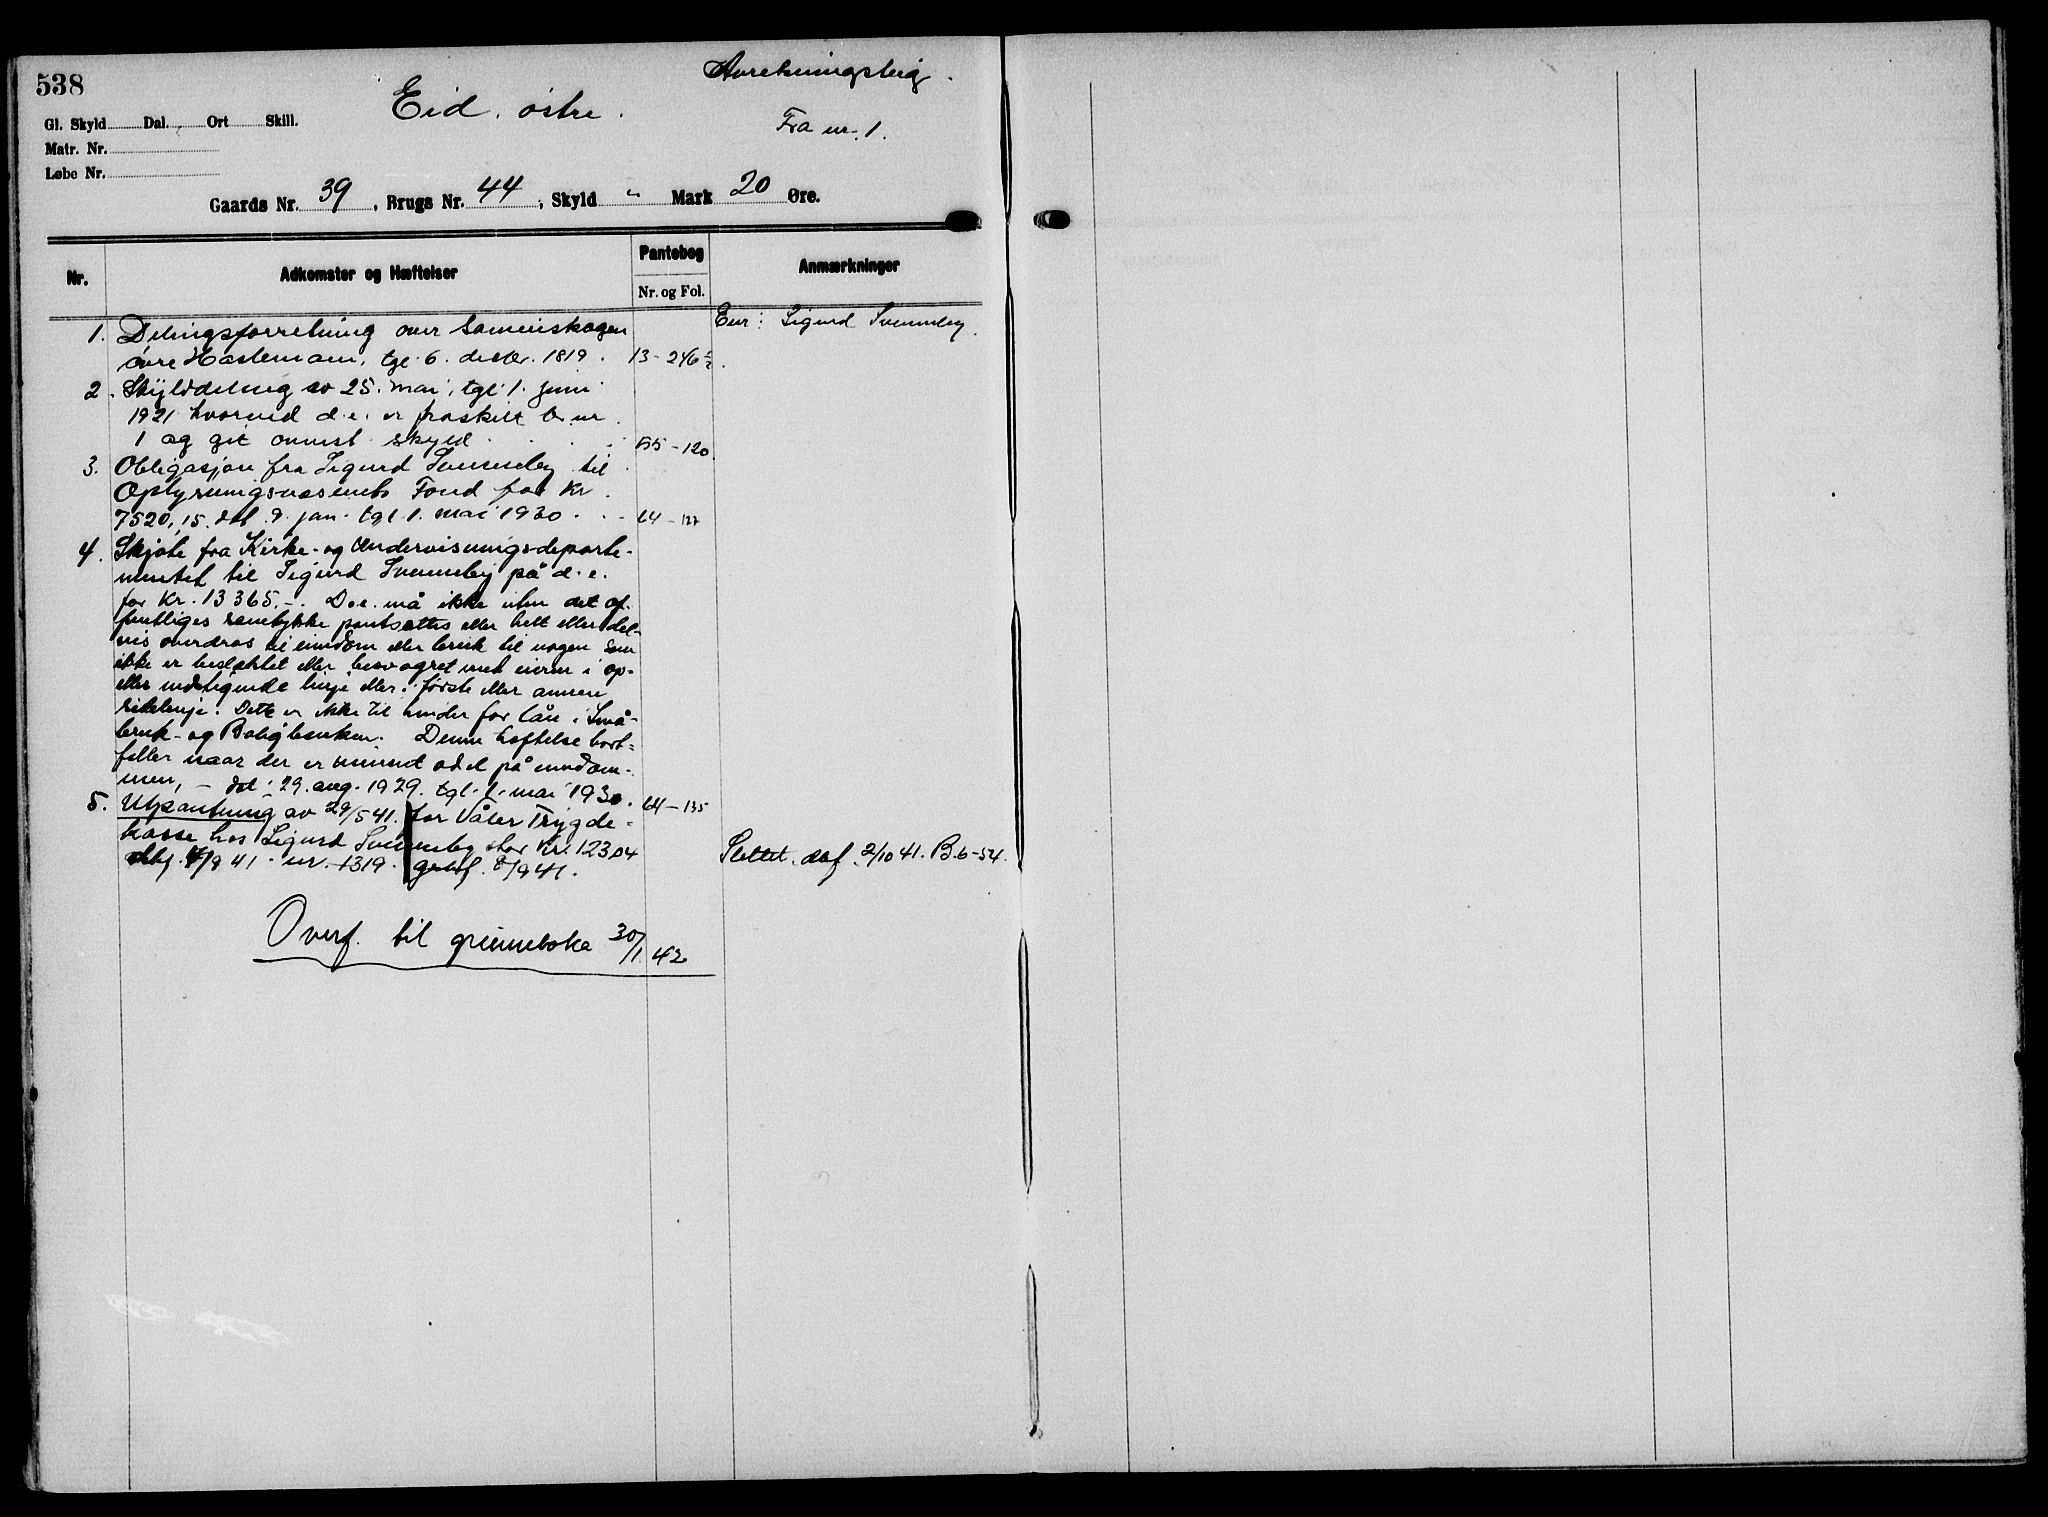 538
Eid. østre.
Avrekningsteig.
Fra nr. 1.
Gl. Skyld Dal. Ort Skill.
Matr. Nr.
Løbe Nr.
Gaards Nr. 39, Brugs Nr. 44, Skyld " Mark 20 Øre.
Nr. Adkomster og Hæftelser Pantebog Nr. og Fol. Anmærkninger
1. Delingsforretning over Sameieskogen Eier: Sigurd Svenneby.
øvre Haslemoen, tgl. 6. desbr. 1819. 13-246
2. Skylddeling av 25. mai, tgl. 1. juni
1921 hvorved d.e. er fraskilt br. nr.
1 og git ovennt. skyld. 55-120
3. Obligasjon fra Sigurd Svenneby til
Oplysningsvæsenets Fond for kr.
7520,15. dat. 9. jan. tgl. 1. mai 1930. 64-127
4. Skjøte fra Kirke- og Undervisningsdeparte-
mentet til Sigurd Svenneby på d.e.
for kr. 13365.-. D.e. må ikke uten det of-
fentliges samtykke pantsettes eller helt eller del-
vis overdras til eiendom eller bruk til nogen som
ikke er beslektet eller besvogret med eieren i op-
eller nedstigende linje eller i første eller annen
sidelinje. Dette er ikke til hinder for lån i Små-
bruk- og Boligbanken. Denne heftelse bort-
faller naar der er vunnet odel på eiendom-
men, - dat. 29. aug. 1929. tgl. 1. mai 1930. 64-135
5. Utpantning av 29/5 41. for Våler Trygde-
kasse hos Sigurd Svenneby stor kr. 123,04
dbf. 4/9 41. nr. 1319. grbf. 8/9 41. Slettet. dbf. 2/10 41. B.6-54.
Overf. til grunnboka 30/1. 42